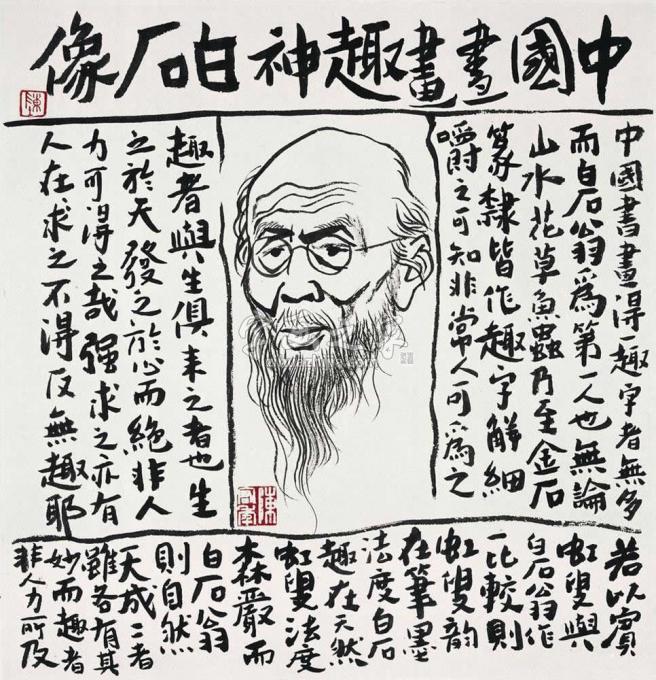 中國書畫趣神白石像
陳
中國書畫得一趣字者無多
而白石翁爲第一人也無論
山水花草魚蟲乃至金石
篆隸皆作趣字解細
嚼之可知非常人可爲之
趣者與生俱來之者也生
之於天發之於心而絕非人
力可得之哉強求之亦有
人在求之不得反無趣耶
若以賓
虹叟與
白石翁作
一比較則
虹叟韻
在筆墨
法度白石
趣在天然
虹叟法度
森嚴而
白石翁
則自然
天成二者
雖各有其
妙而趣者
非人力所及